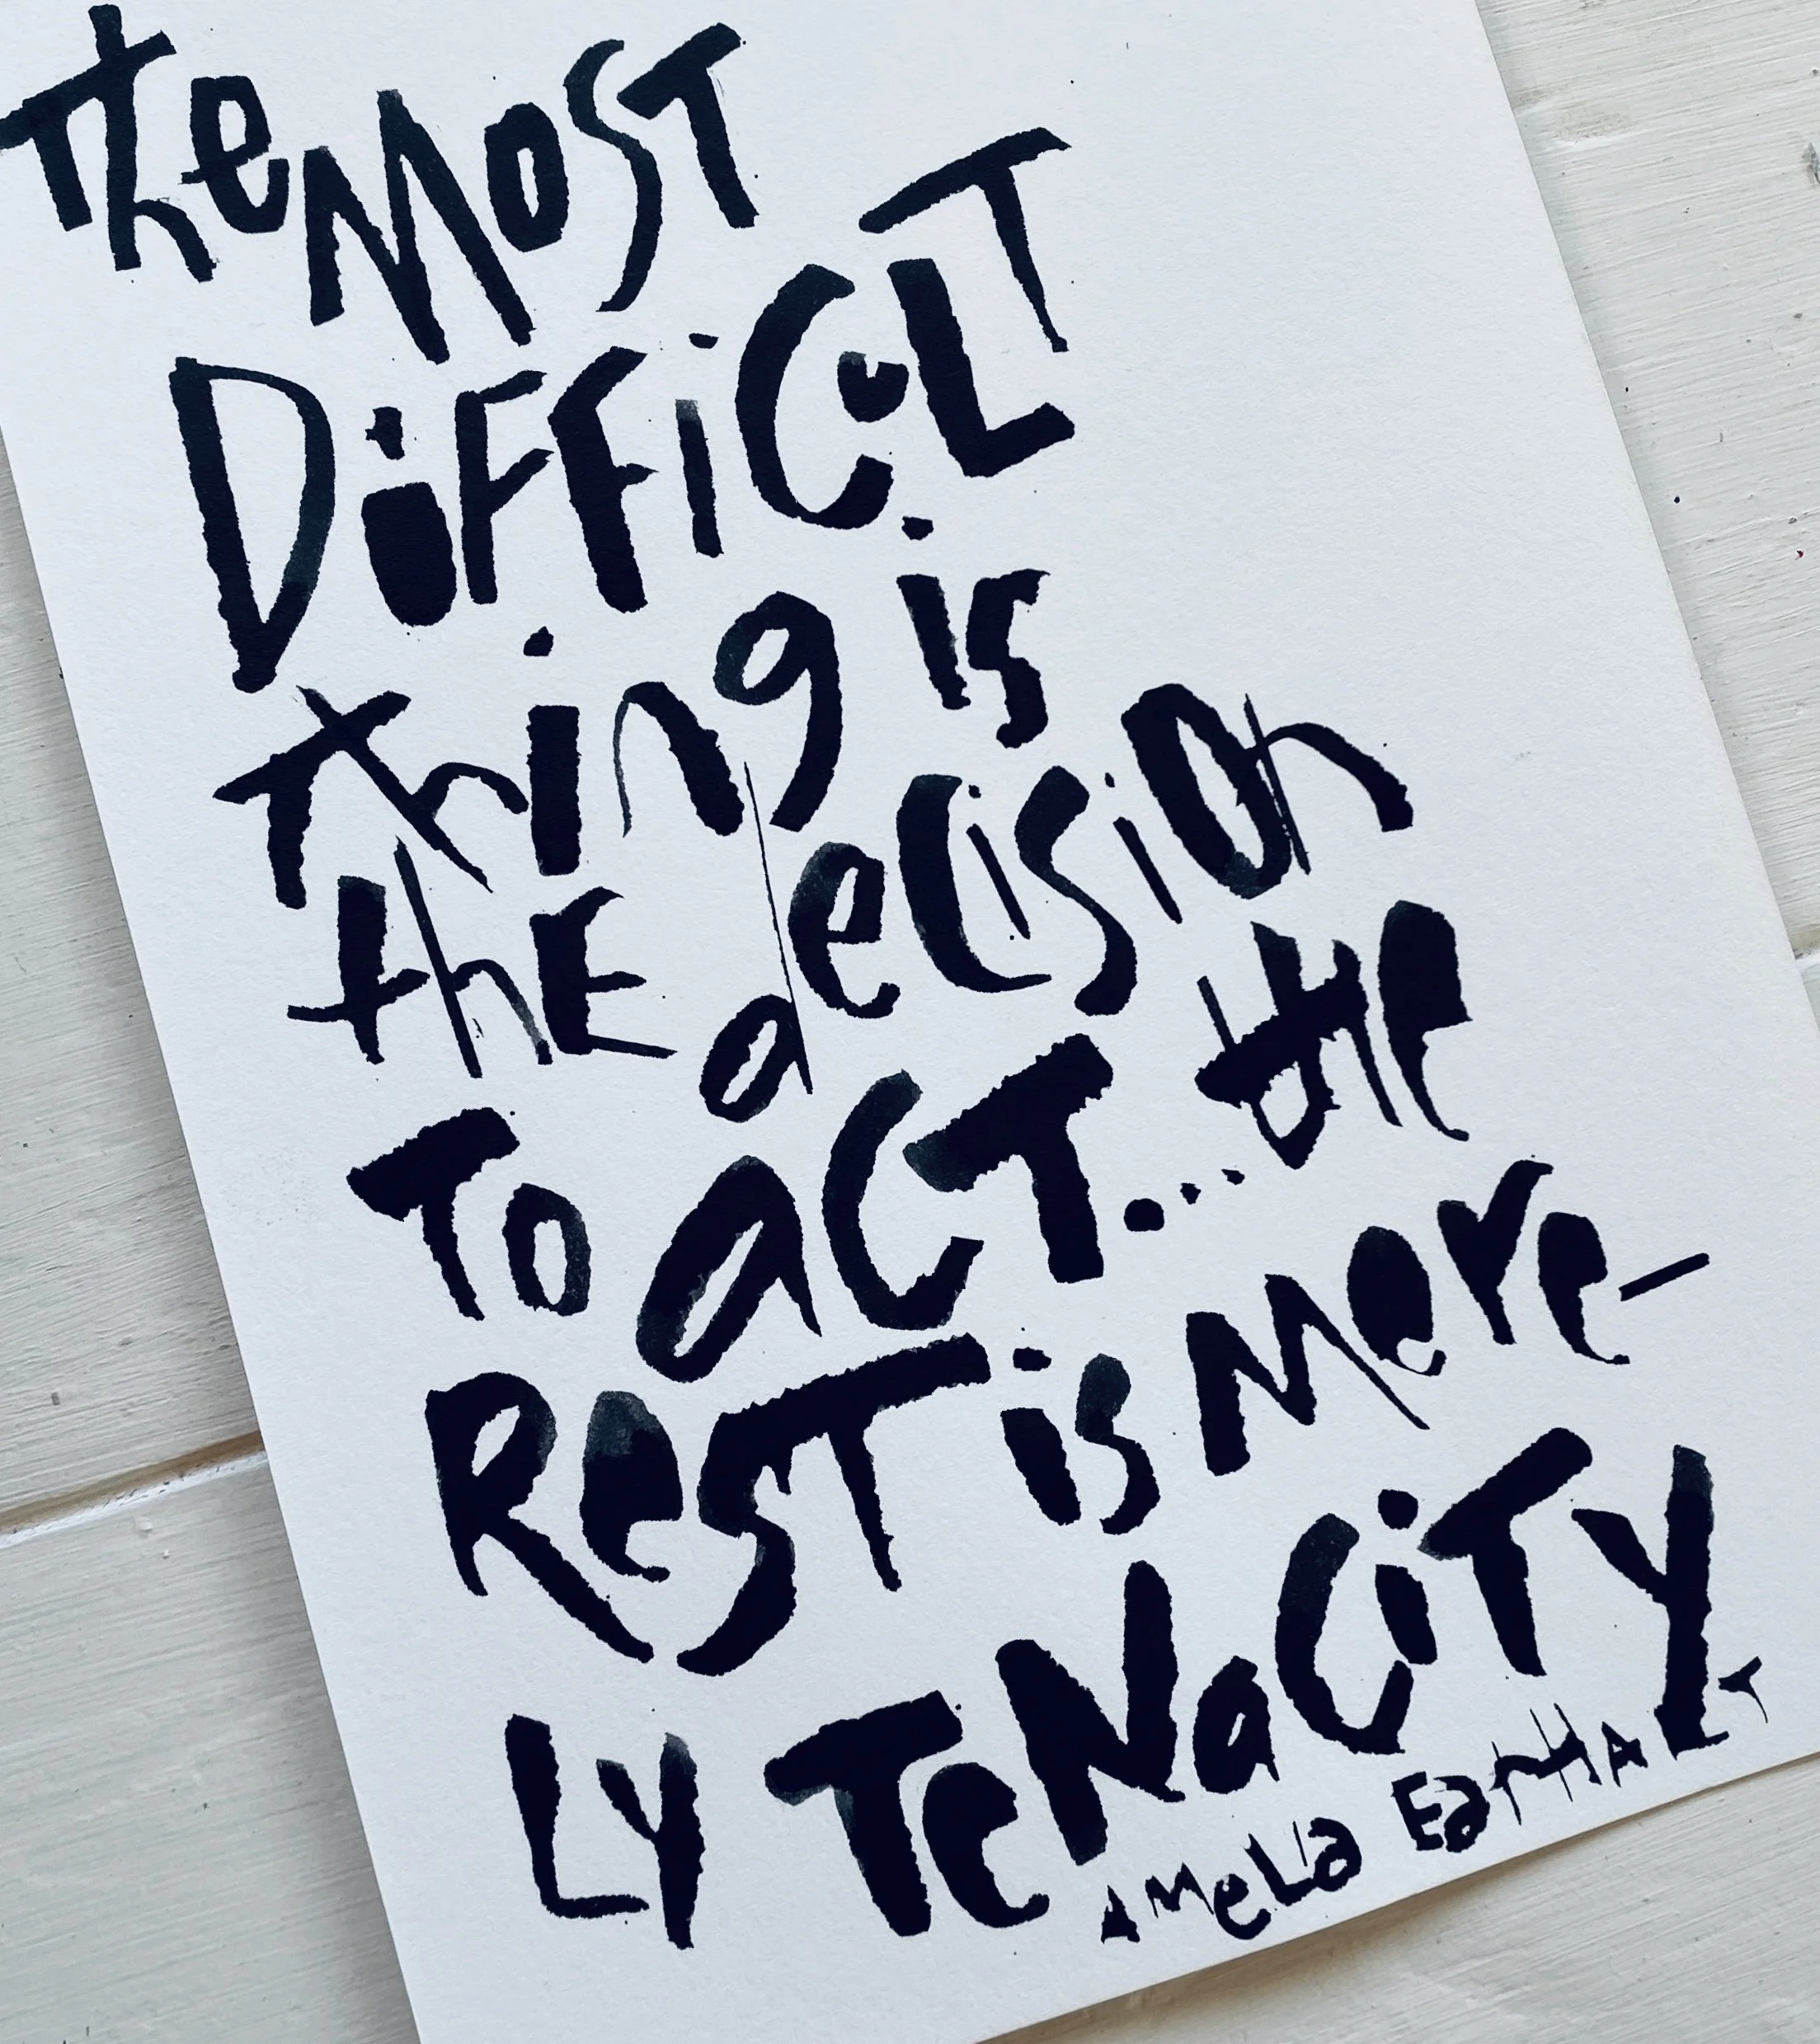 the MOST
DiFFiCuLT
Thing is
thE decision
To aCT... the
ResT is Mere-
LY TeNaCiTY
AMeLia EarHART